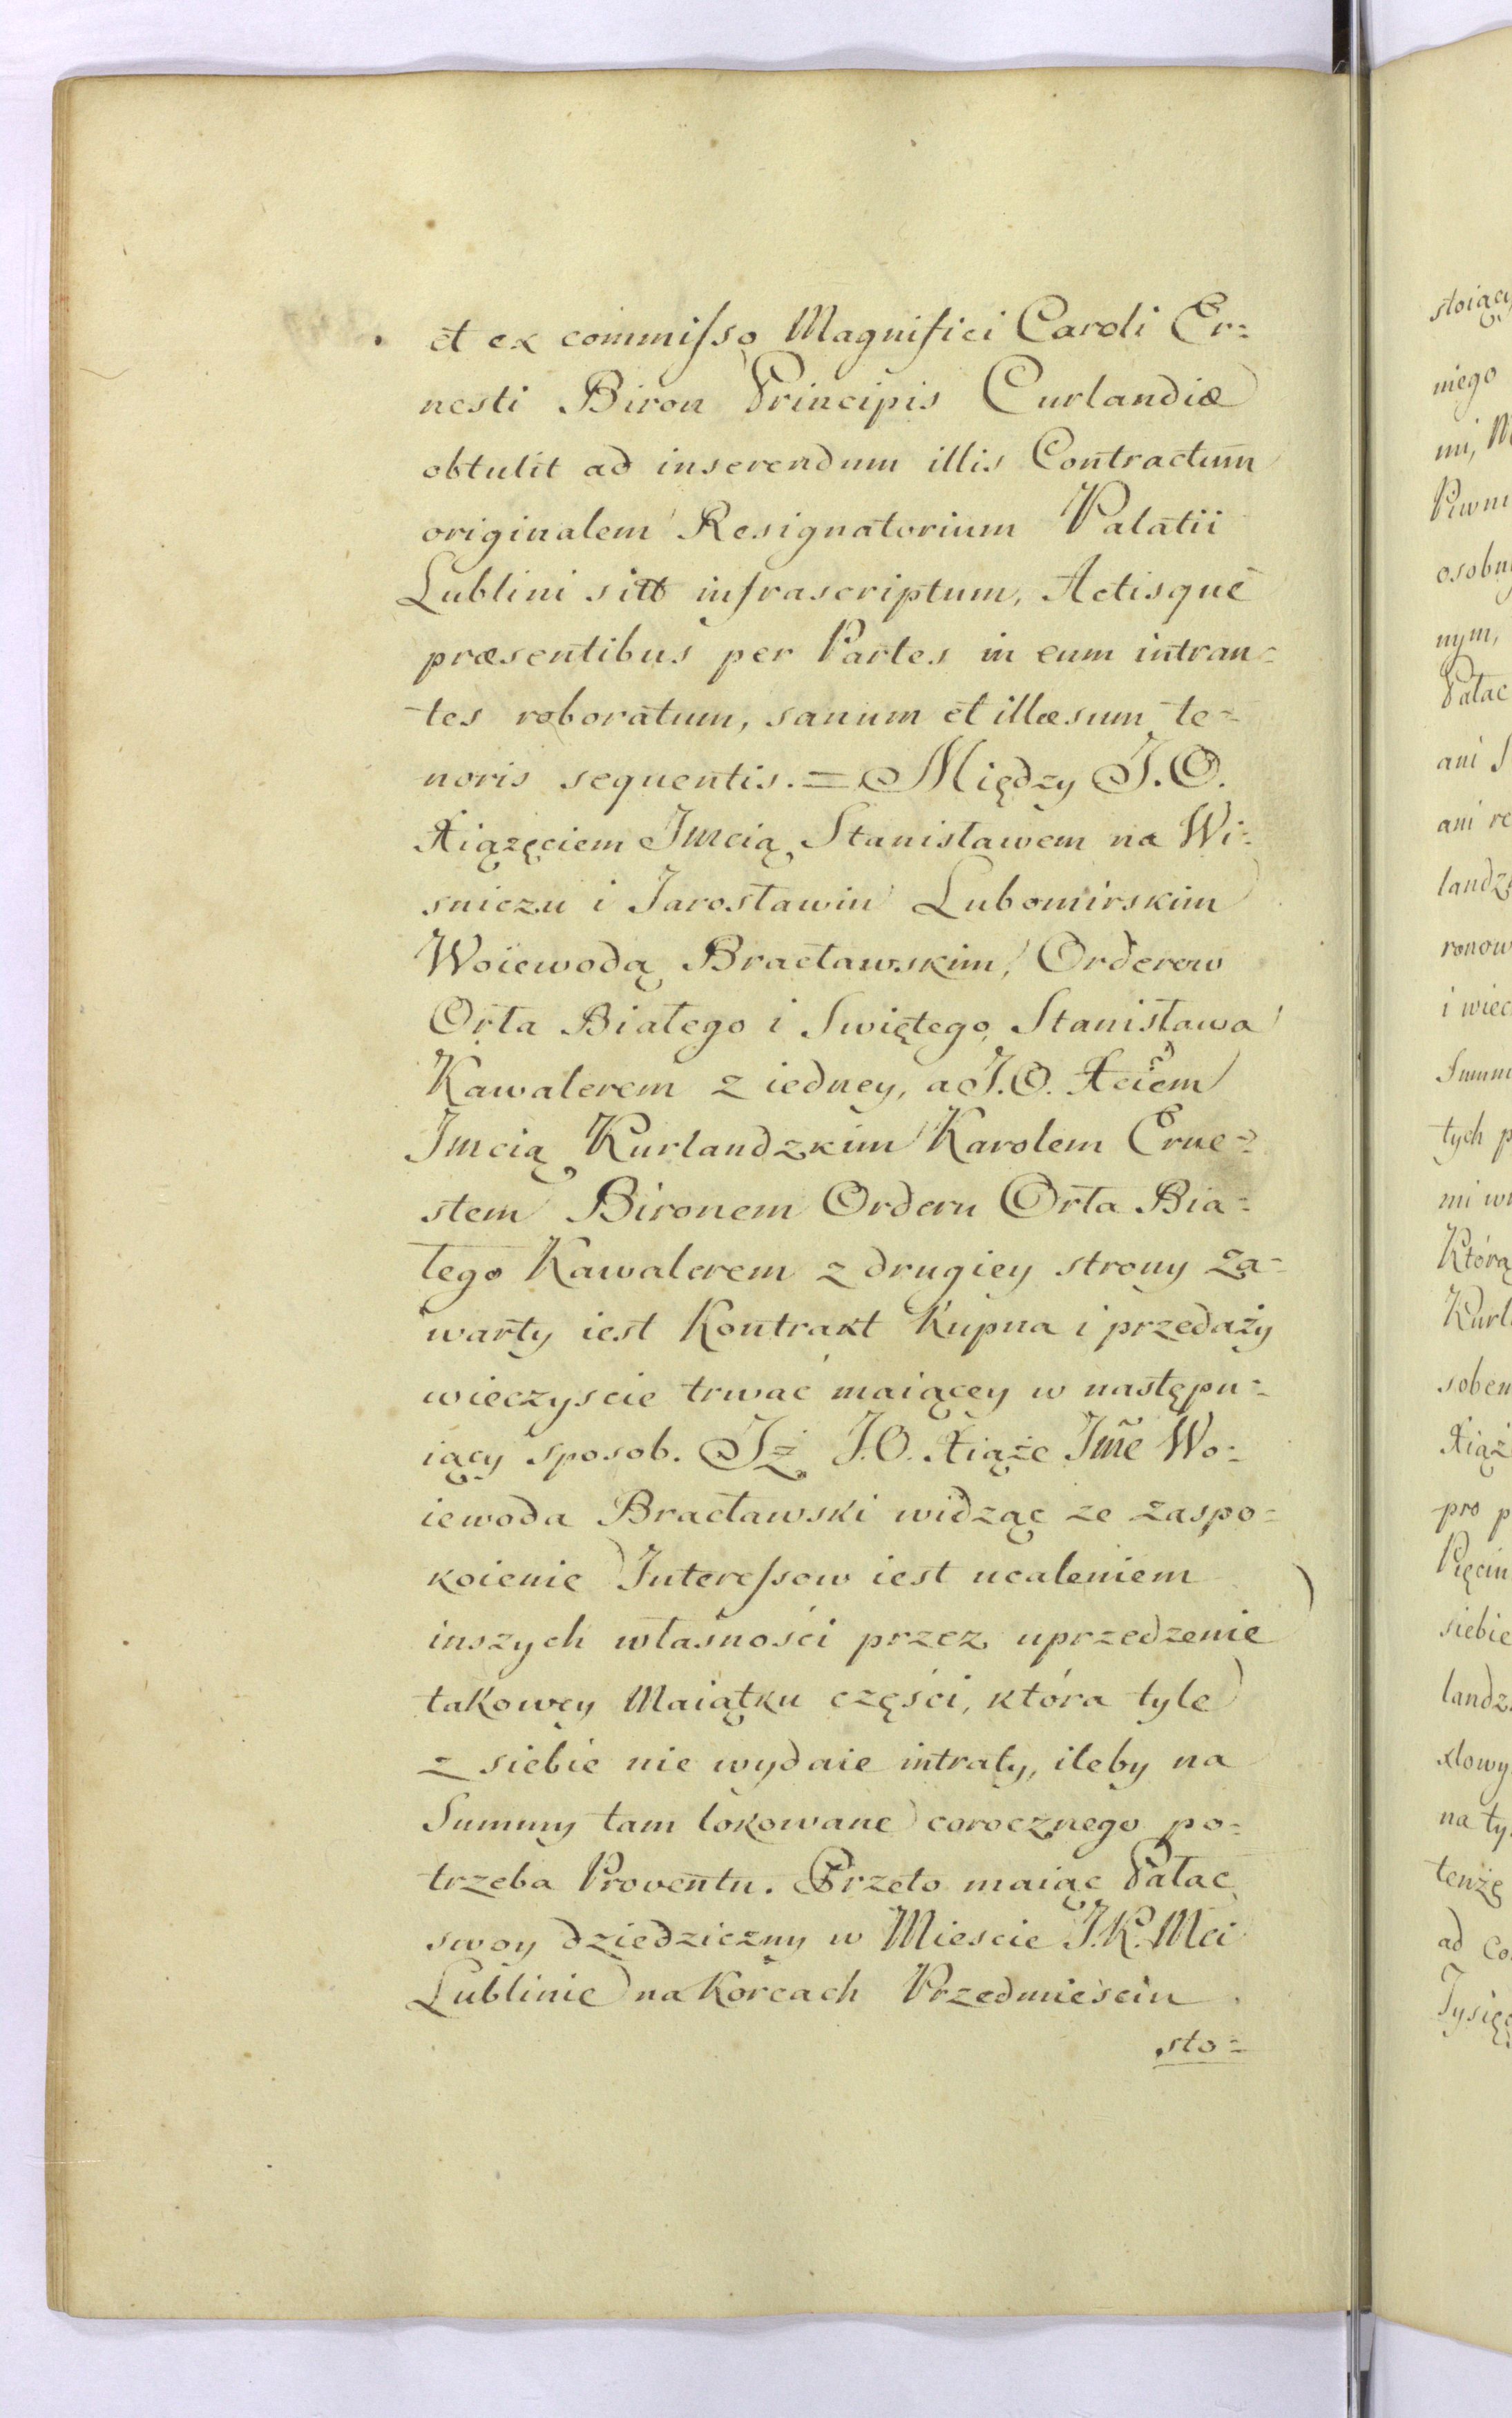 et ex commisso Magnifici Caroli Er=
nesti Biron Principis Curlandiæ
obtulit ad inserendum illis Contractum
originalem Resignatorium Palatii
Lublini siti infrascriptum, Actisque
præsentibus per Partes in eum intran=
tes roboratum, sanum et illæsum te=
noris sequentis. = Między J.O.
Xiązęciem Jmcią Stanisławem na Wi=
sniczu i Jarosławiu Lubomirskim
Woiewodą Bracławskim, Orderow
Orła Białego i Swiętego Stanisława
Kawalerem z iedney, a J.O. Xciem
Jmcią Kurlandzkim Karolem Erne=
stem Bironem Orderu Orła Bia=
łego Kawalerem z drugiey strony za=
warty iest Kontrakt Kupna i przedaży
wieczyscie trwać maiącey w następu=
iący sposob. Iż J.O. Xiąże Jmć Wo=
iewoda Bracławski widząc ze zaspo=
koienie Interessow iest ucaleniem
inszych własności przez uprzedzenie
takowey Maiątku części, która tyle
z siebie nie wydaie intraty, ileby na
Summy tam lokowane corocznego po=
trzeba Proventu. Przeto maiąc Pałac
swoy dziedziczny w Miescie J.K.Mci
Lublinie na Korcach Przedmieściu
sto=
stoiący
niego
mi,
osobny
nym,
Pałac
ani
ani
i
tych
Którą
pro
siebie
na
tenże
ad